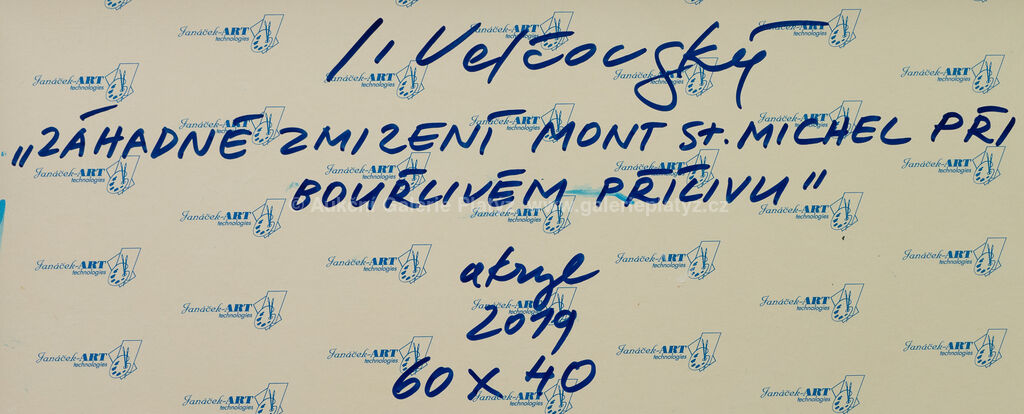 I. Velčovský
Janáček-ART
technologies
„ZÁHADNÉ ZMIZENÍ MONT St. MICHEL PŘI
BOUŘLIVÉM PŘÍLIVU"
© Aukční Galerie Platýz - www.galerieplatyz.cz
akryl
2019
60 x 40